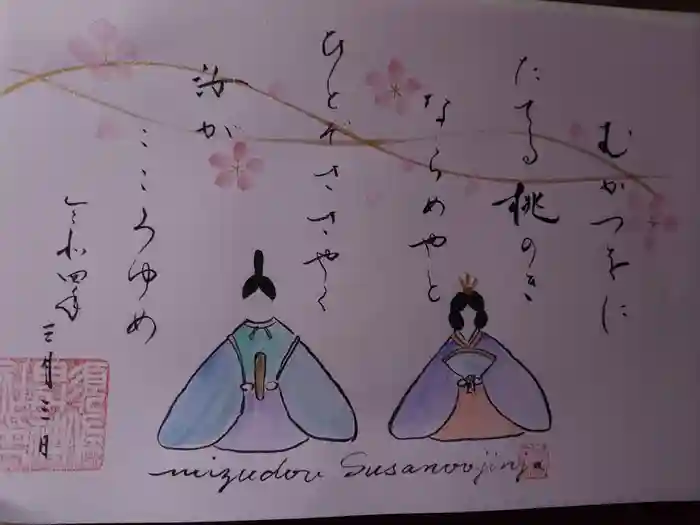 むかつをに
たてる桃のき
ならめやと
ひとぞささやく
汝が
こころゆめ
令和四年
三月三日
mizudou Susanoojinja